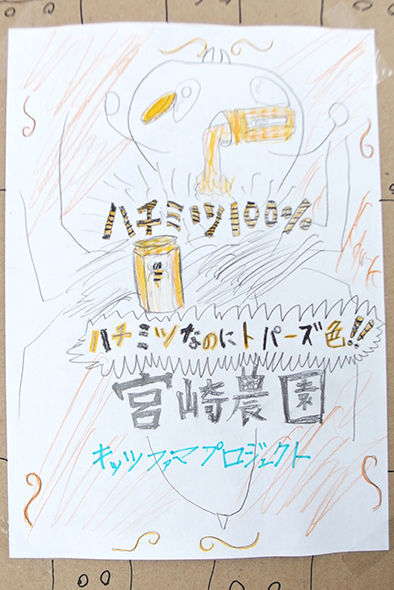 ハチミツ100%
ハチミツなのにトパーズ色!!
宮崎農園
キッツファマプロジェクト